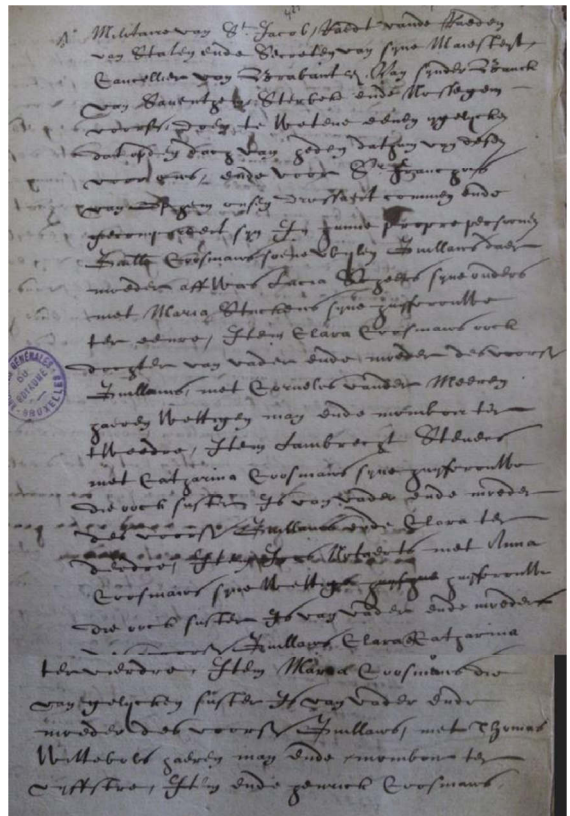 Militaire van St Jacob, Raedt vande Raeden
van Staten ende Secreten van syne Maiesteyt,
Cancellier van Brabant &. Van synder Banck
van Saventhem Sterbeke ende Nosseghem
voorst, doen te wetene eenen ygelycken
dat op den dach van heden dathum van desen
voor ons, ende voor Sr Franchoys
van onsen Drossaert commen ende
gecompareert syn In hunne propre persoonen
Coosmans sone wylen Guilliams daer
moeder aff was syne ouders
met Maria Stuckens syne huysfrouwe
ter eenre, Item Clara Coosmans oock
dochter van vader ende moeder des voorst
Guilliams, met Cornelis vander Meeren
haeren wettigen man ende momboir ter
tweedre, Item Lambrecht Stevens
met Catharina Coosmans syne huysfrouwe
die oock suster is van vader ende moeder
des voorst Guilliams ende Clara ter
derdre, Item met Anna
Coosmans syne wettige huysfrouwe
die oock suster is van vader ende moeder
Guilliams, Clara Catharina
ter vierdre, Item Maria Coosmans die
van gelycken suster is van vader ende
moeder des voorst Guilliams, met Thomas
Wittebols haeren man ende momboir ter
vyffstre, Item ende Henrick Coosmans,
GÉNÉRALES
DU
ROYAUME
BRUXELLES